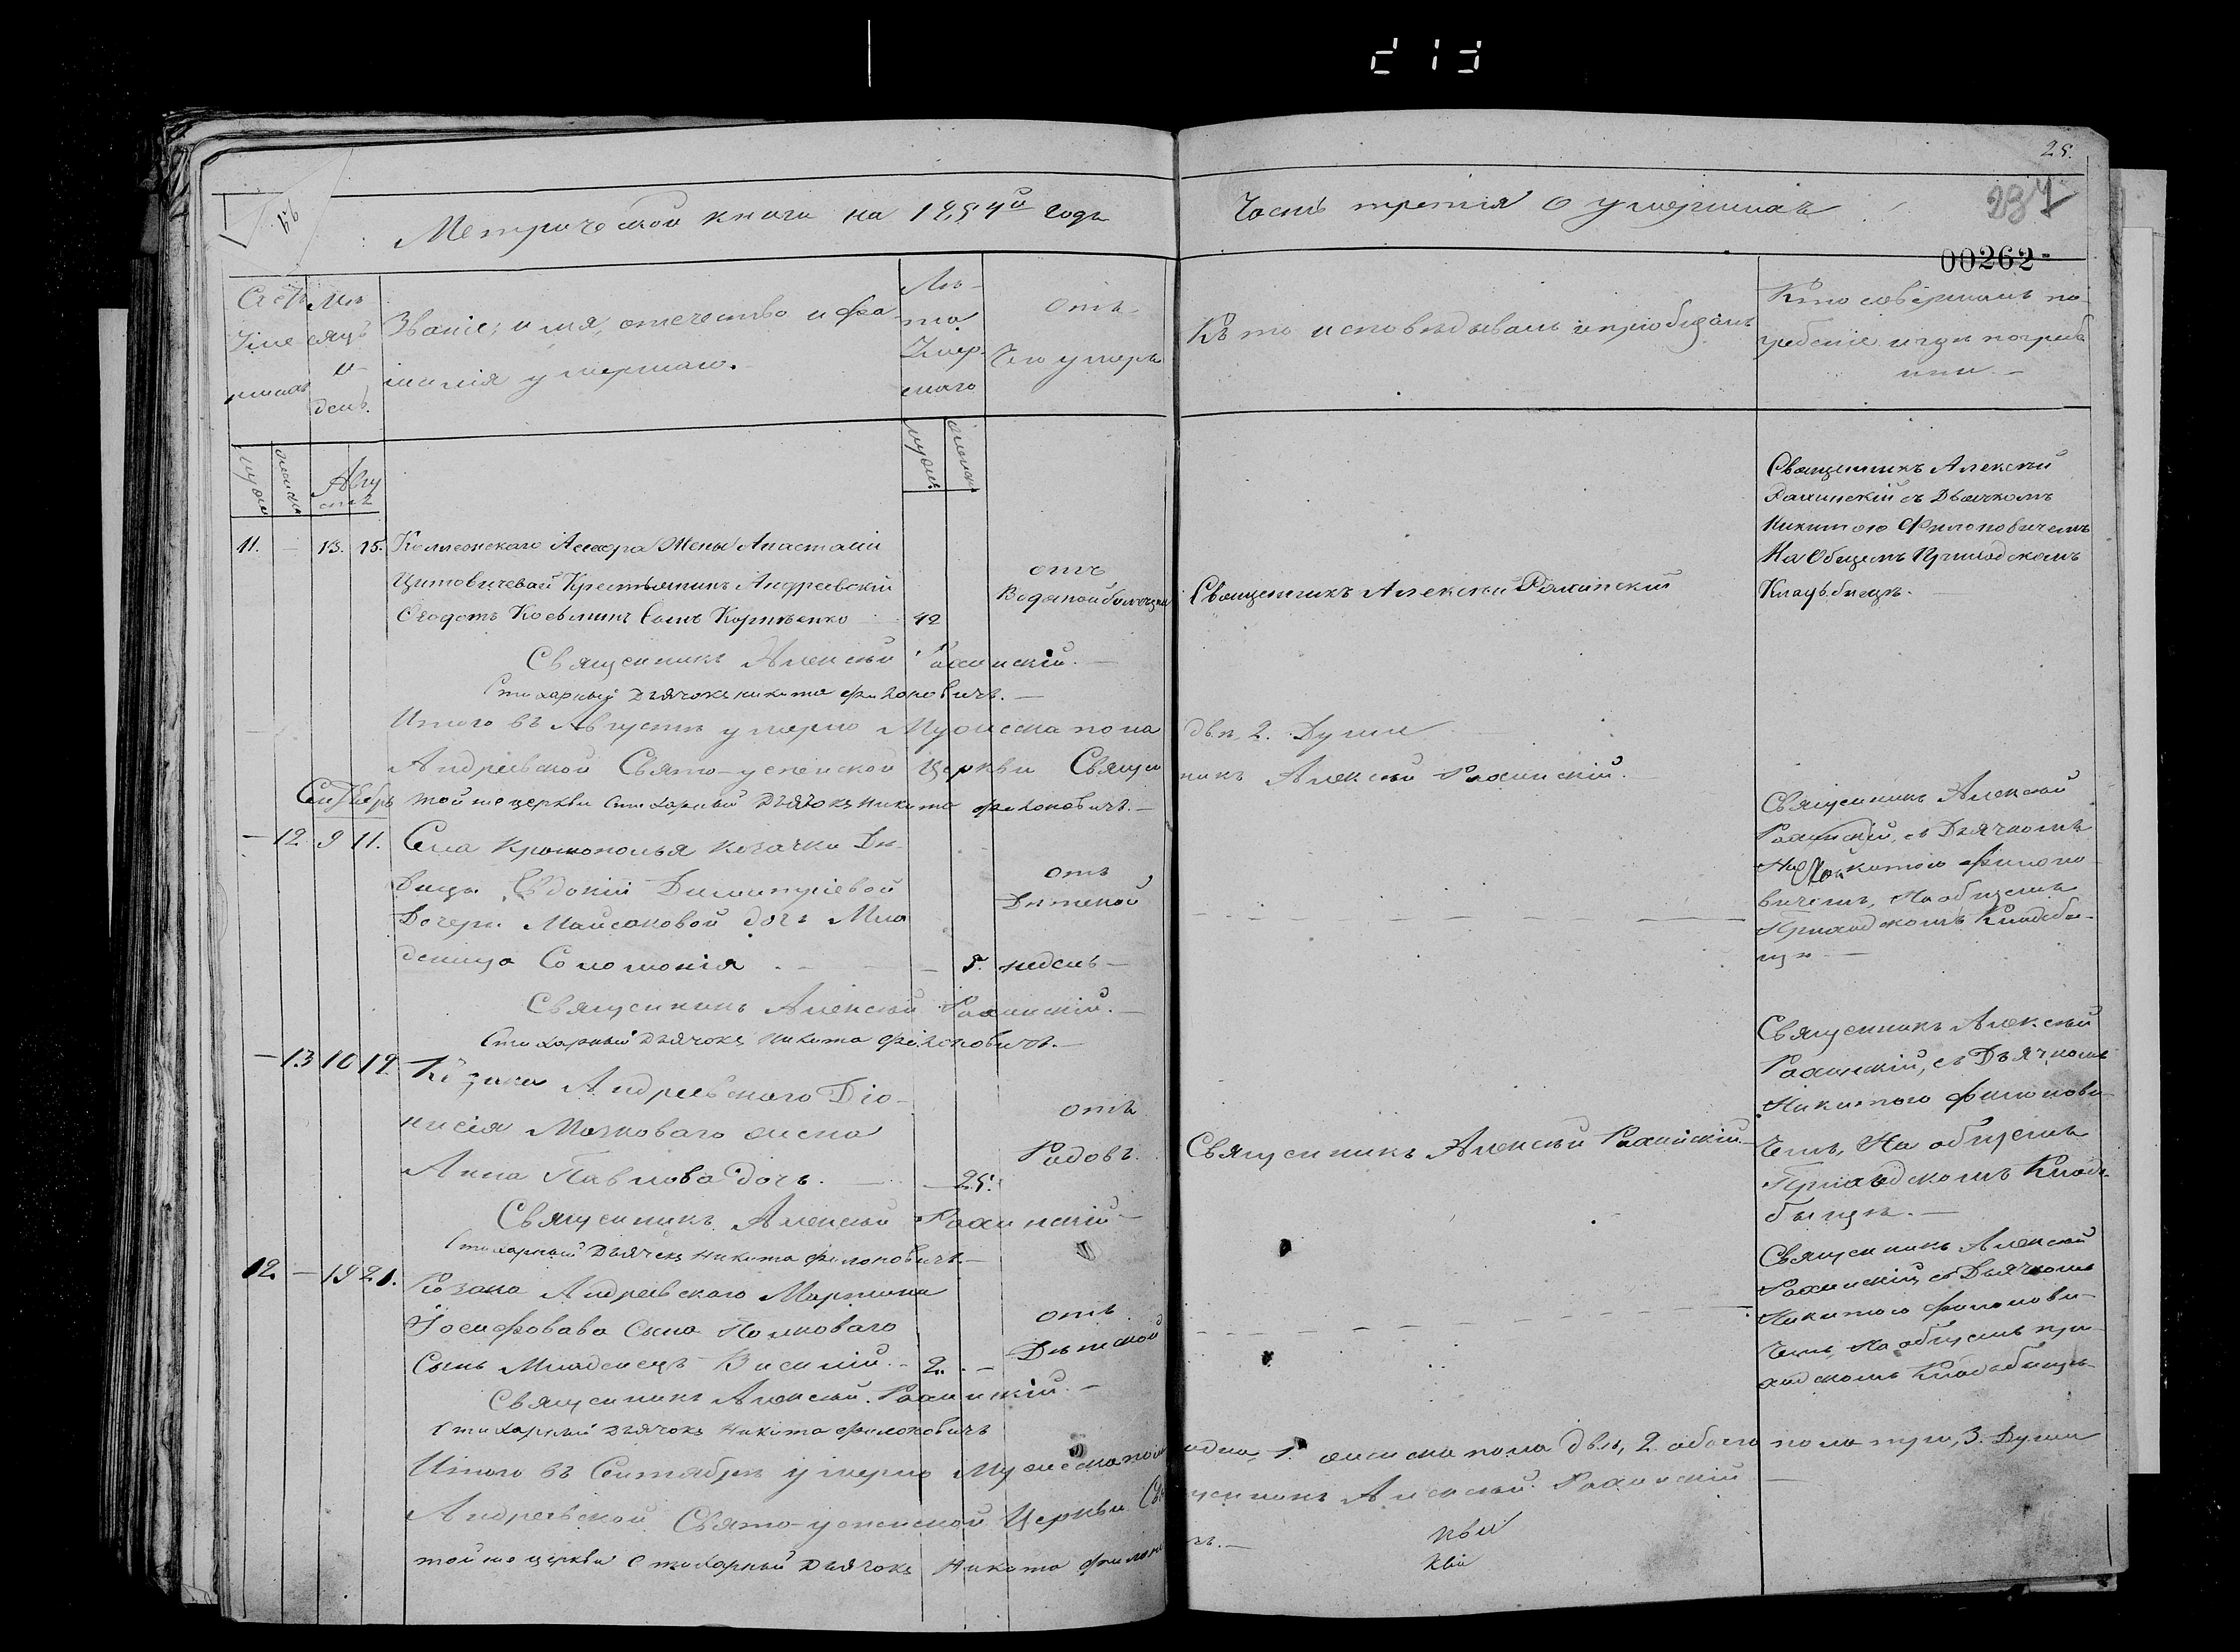 25.
237
00262
Метрической книги на 1854й годъ
Часть третія о умершихъ
Счетъ умершихъ
Мѣсяцъ и день.
Званіе, имя, отечество и фамилія умершаго.
Лѣта умершаго
отъ чего умеръ
Кто исповѣдывалъ и пріобщалъ
Кто совершалъ погребеніе и гдѣ погребены
мужеск
женска
Августъ
мужеск
женск
11. — 13. 15. Колежскаго Асесора Жены Анастасіи
Цитовичевой Крестьянинъ Андреевскій
Ѳеодотъ Косьминъ сынъ Корнѣенко 42
отъ
Водяной болѣзни
Священникъ Алексѣй Рахинскій
Священникъ Алексѣй
Рахинскій съ Дьячкомъ
Никитою Филоновичемъ
На Общемъ Приходскомъ
Кладбищѣ.
Священникъ Алексѣй Рахинскій. —
Стихарный Дьячокъ Никита Филоновичъ. —
Итого въ Августѣ умерло Мужеска пола двѣ, 2. Души
Андреевской Свято-успенской Церкви Священникъ Алексѣй Рахинскій.
Сентябрь
той же церкви Стихарный Дьячокъ Никита Филоновичъ. —
— 12. 9 11. Села Кропополья козачки Дѣ-
вицы Евдокіи Димитріевой
Дочери Майсаковой дочь Мла
деница Соломонія — 5. недель —
отъ
Дѣтской
Священникъ Алексѣй
Рахинскій, съ Дьячкомъ
Никитою Филоно
вичемъ, На общемъ
Приходскомъ Кладби-
щѣ —
Священникъ Алексѣй Рахинскій. —
Стихарный Дьячокъ Никита Филоновичъ. —
— 13 10 12. Козака Андреевского Діо-
нисія Мозковаго жена
Анна Павлова дочь. — 25.
отъ
Родовъ.
Священникъ Алексѣй Рахинскій —
Священникъ Алексѣй
Рахинскій, съ Дьячкомъ
Никитою Филонови-
чемъ, На общемъ
Приходскомъ Клад-
бищѣ. —
Священникъ Алексѣй Рахинскій —
Стихарный Дьячокъ Никита Филоновичъ. —
12. — 19 21. Козака Андреевского Мартина
Іосифовава Сына
Сынъ Младенецъ Василій. — 2. —
отъ
Дѣтской
Священникъ Алексѣй
Рахинскій съ Дьячкомъ
Никитою Филонови-
чемъ, На общемъ при-
ходскомъ Кладбищѣ
Священникъ Алексѣй Рахинскій. —
Стихарный Дьячокъ Никита Филоновичъ
Итого въ Сентябрѣ умерло Мужеска пола одна, 1. женска пола двѣ, 2. обоего пола три, 3. Души
Андреевской Свято-успенской Церкви Священникъ Алексѣй Рахинскій —
той же церкви Стихарный Дьячокъ Никита Филоновичъ. —